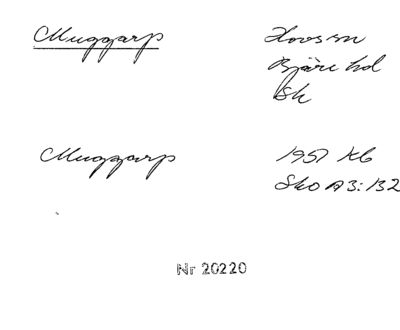 Muggarp
Hovs sn
Bjäre hd
Sk
Muggarp
1957 Kb
Sko A3:132
Nr 20220